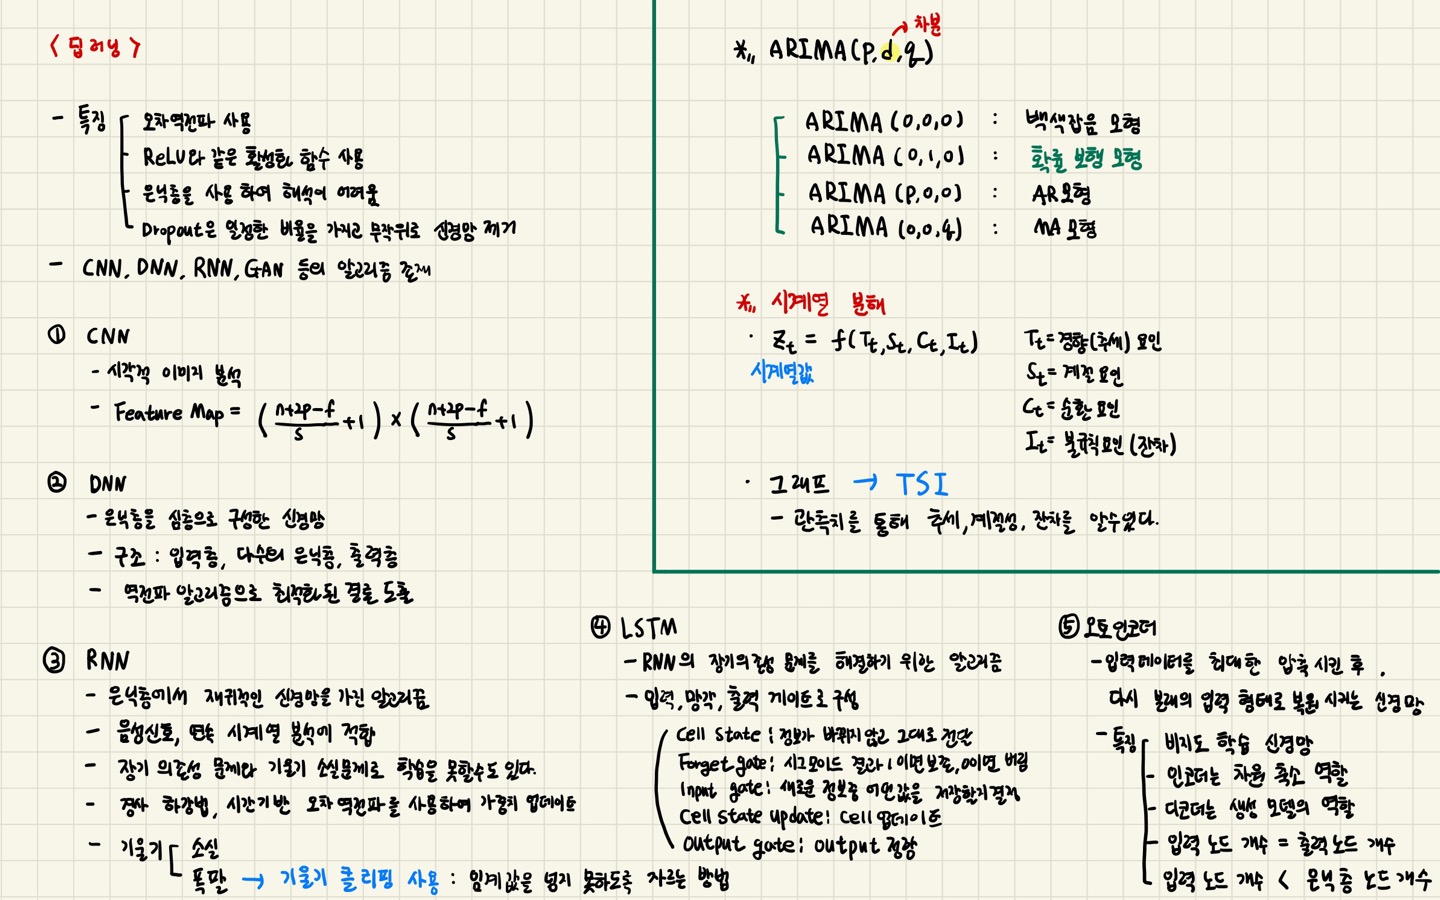 < 딥러닝 >
- 특징
오차역전파 사용
ReLU와 같은 활성화 함수 사용
은닉층을 사용하여 해석이 어려움
Dropout은 일정한 비율을 가지고 무작위로 신경망 제거
- CNN, DNN, RNN, GAN 등의 알고리즘 존재
① CNN
- 시각적 이미지 분석
- Feature Map = ( (n+2p-f)/s + 1 ) × ( (n+2p-f)/s + 1 )
② DNN
- 은닉층을 심층으로 구성한 신경망
- 구조 : 입력층, 다수의 은닉층, 출력층
- 역전파 알고리즘으로 최적화된 결과 도출
③ RNN
- 은닉층에서 재귀적인 신경망을 가진 알고리즘
- 음성신호, 연속 시계열 분석에 적합
- 장기 의존성 문제와 기울기 소실문제로 학습을 못할수도 있다.
- 경사 하강법, 시간기반 오차역전파를 사용하여 가중치 업데이트
- 기울기
소실
폭발 → 기울기 클리핑 사용 : 임계값을 넘지 못하도록 자르는 방법
차분
*,, ARIMA(p,d,q)
ARIMA (0,0,0) : 백색잡음 모형
ARIMA (0,1,0) : 확률 보행 모형
ARIMA (p,0,0) : AR모형
ARIMA (0,0,q) : MA 모형
*,, 시계열 분해
· Zt = f(Tt, St, Ct, It)
시계열값
Tt = 경향(추세) 요인
St = 계절요인
Ct = 순환요인
It = 불규칙요인 (잔차)
· 그래프 → TSI
- 관측치를 통해 추세, 계절성, 잔차를 알수있다.
④ LSTM
- RNN의 장기의존성 문제를 해결하기 위한 알고리즘
- 입력, 망각, 출력 게이트로 구성
Cell state : 정보가 바뀌지 않고 그대로 전달
Forget gate : 시그모이드 결과 1이면보존, 0이면 버림
Input gate : 새로운 정보중 어떤값을 저장할지결정
Cell state update : Cell 업데이트
Output gate : output 정함
⑤ 오토인코더
- 입력데이터를 최대한 압축 시킨 후 .
다시 본래의 입력 형태로 복원 시키는 신경망
- 특징
비지도 학습 신경망
- 인코더는 차원 축소 역할
- 디코더는 생성 모델의 역할
- 입력 노드 개수 = 출력노드 개수
입력 노드 개수 < 은닉층 노드개수